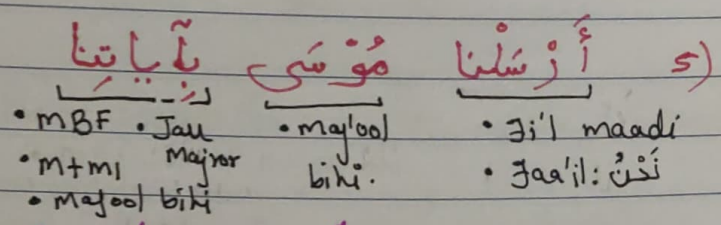 5) أَرْسَلْنا مُوْسَى بِآياتِنا
• Fi'l maadi
• Faa'il: نَحْنُ
• maf'ool
bihi.
• Jaa
Majror
• mBF
• m+mI
• mafool bihi